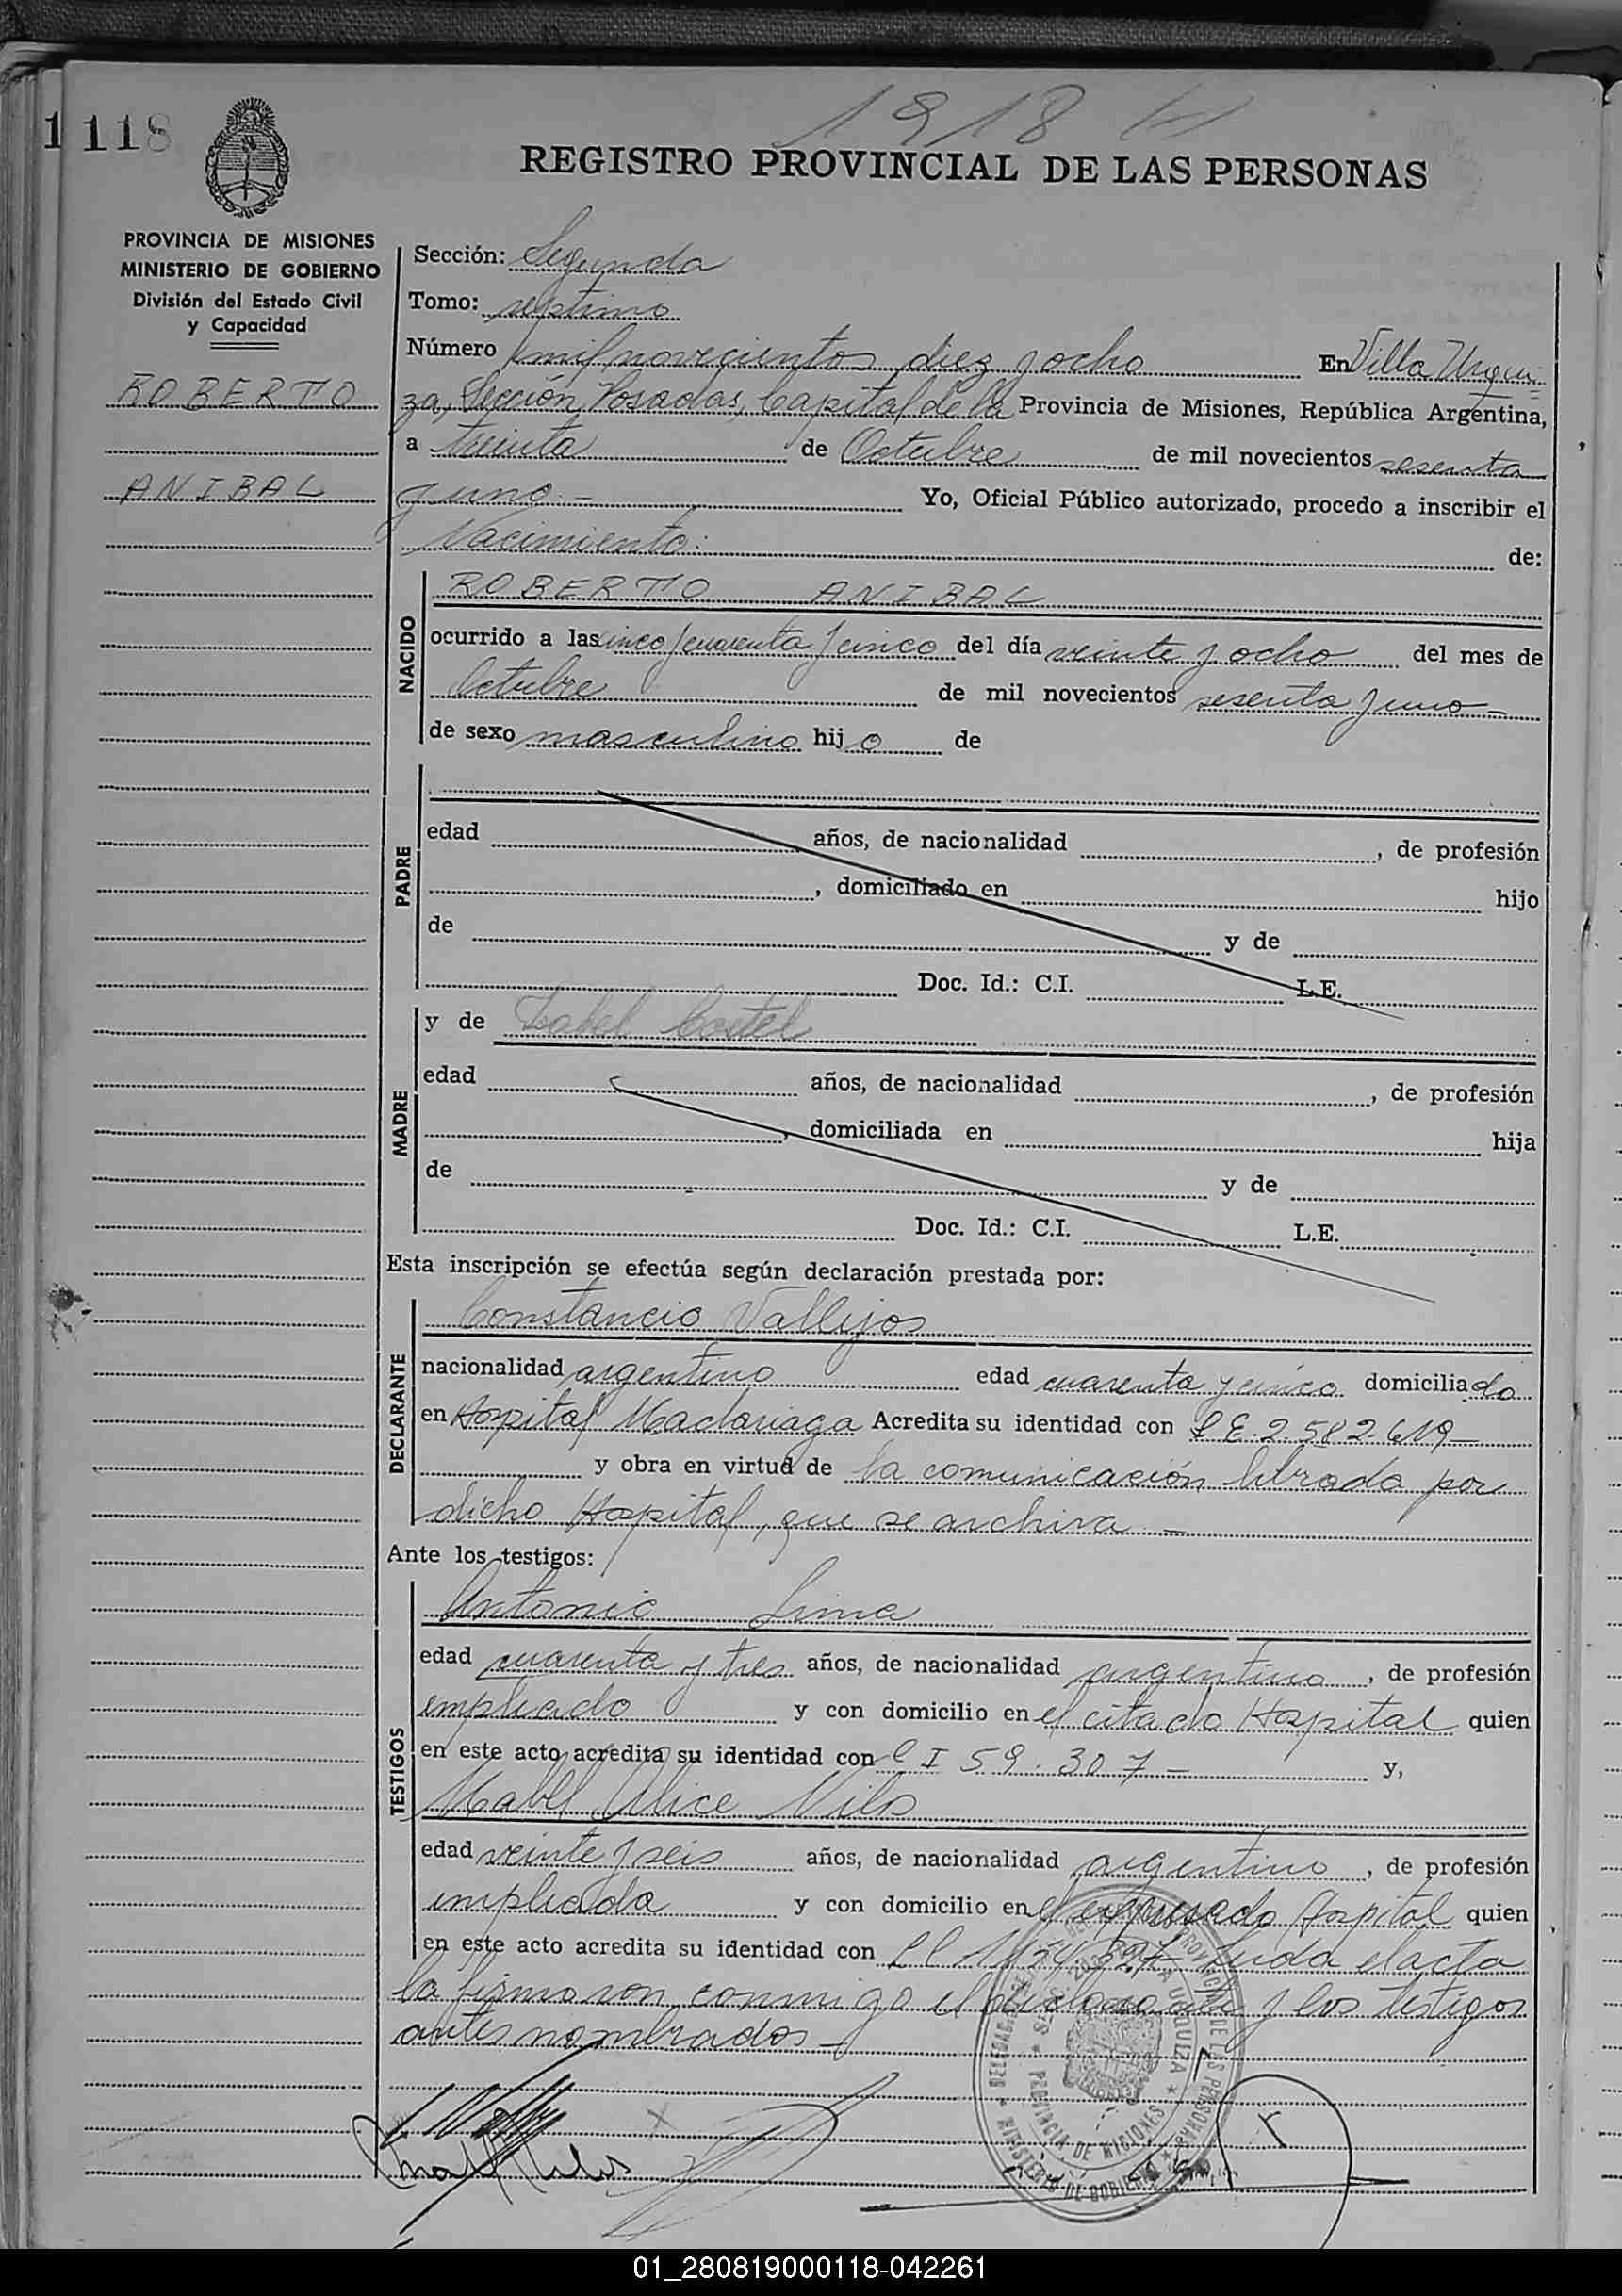 1918
1 118
REGISTRO PROVINCIAL DE LAS PERSONAS
PROVINCIA DE MISIONES
MINISTERIO DE GOBIERNO
División del Estado Civil
y Capacidad
ROBERTO
ANIBAL
Sección: Segunda
Tomo: septimo
Número mil novecientos diez y ocho En Villa Urqui
za, Sección Posadas, Capital de la Provincia de Misiones, República Argentina,
a treinta de Octubre de mil novecientos sesenta
y uno.- Yo, Oficial Público autorizado, procedo a inscribir el
Nacimiento: de:
NACIDO
ROBERTO ANIBAL
ocurrido a las cinco y cuarenta y cinco del día veinte y ocho del mes de
Octubre de mil novecientos sesenta y uno-
de sexo masculino hijo de
PADRE
edad años, de nacionalidad , de profesión
, domiciliado en hijo
de y de
Doc. Id.: C.I. L.E.
MADRE
y de Isabel
edad años, de nacionalidad , de profesión
, domiciliada en hija
de y de
Doc. Id.: C.I. L.E.
Esta inscripción se efectúa según declaración prestada por:
DECLARANTE
Constancio Vallejos
nacionalidad argentino edad cuarenta y cinco domiciliado
en Hospital Madariaga Acredita su identidad con L E. 2.582.619-
y obra en virtud de la comunicación librada por
dicho Hospital, que se archiva.-
Ante los testigos:
TESTIGOS
Antonio Lima
edad cuarenta y tres años, de nacionalidad argentino, de profesión
empleado y con domicilio en el citado Hospital quien
en este acto acredita su identidad con C I 59.307- y,
Mabel Alice
edad veinte y seis años, de nacionalidad argentino, de profesión
empleada y con domicilio en el expresado Hospital quien
en este acto acredita su identidad con el acta
la firmaron conmigo el declarante y los testigos
antes nombrados-
PROVINCIA DE MISIONES
MINISTERIO DE GOBIERNO
01_280819000118-042261